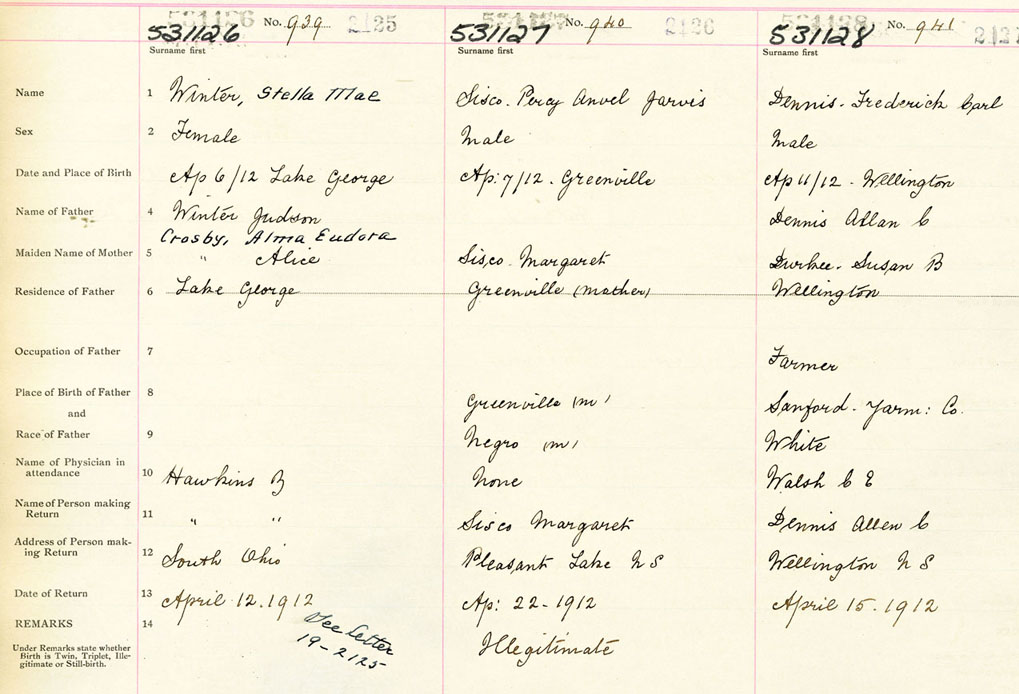 531126 No. 939 2125
531127 No. 940 2126
531128 No. 941
Surname first Surname first Surname first
Name 1 Winter, Stella Mae Sisco. Percy Anvel Jarvis Dennis. Frederick Carl
Sex 2 Female Male Male
Date and Place of Birth Ap 6/12 Lake George Ap: 7/12. Greenville Ap 11/12 - Wellington
Name of Father 4 Winter Judson Dennis Allan C
Crosby, Alma Eudora
Maiden Name of Mother 5 " Alice Sisco Margaret Durkee. Susan B
Residence of Father 6 Lake George Greenville (mother) Wellington
Occupation of Father 7 Farmer
Place of Birth of Father 8 Greenville (m) Sanford. Yarm: Co.
and
Race of Father 9 Negro (m) White
Name of Physician in
attendance 10 Hawkins B None Walsh C E
Name of Person making
Return 11 " " Sisco Margaret Dennis Allen C
Address of Person mak-
ing Return 12 South Ohio Pleasant Lake N S Wellington N S
Date of Return 13 April 12. 1912 Ap: 22 - 1912 April 15. 1912
REMARKS 14
See Letter
19-2125
Under Remarks state whether
Birth is Twin, Triplet, Ille-
gitimate or Still-birth.
Illegitimate